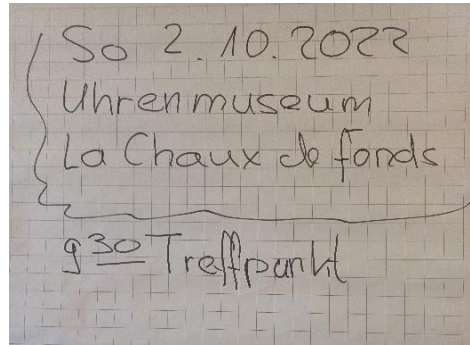 So 2.10.2022
Uhrenmuseum
La Chaux de fonds
930 Treffpunkt